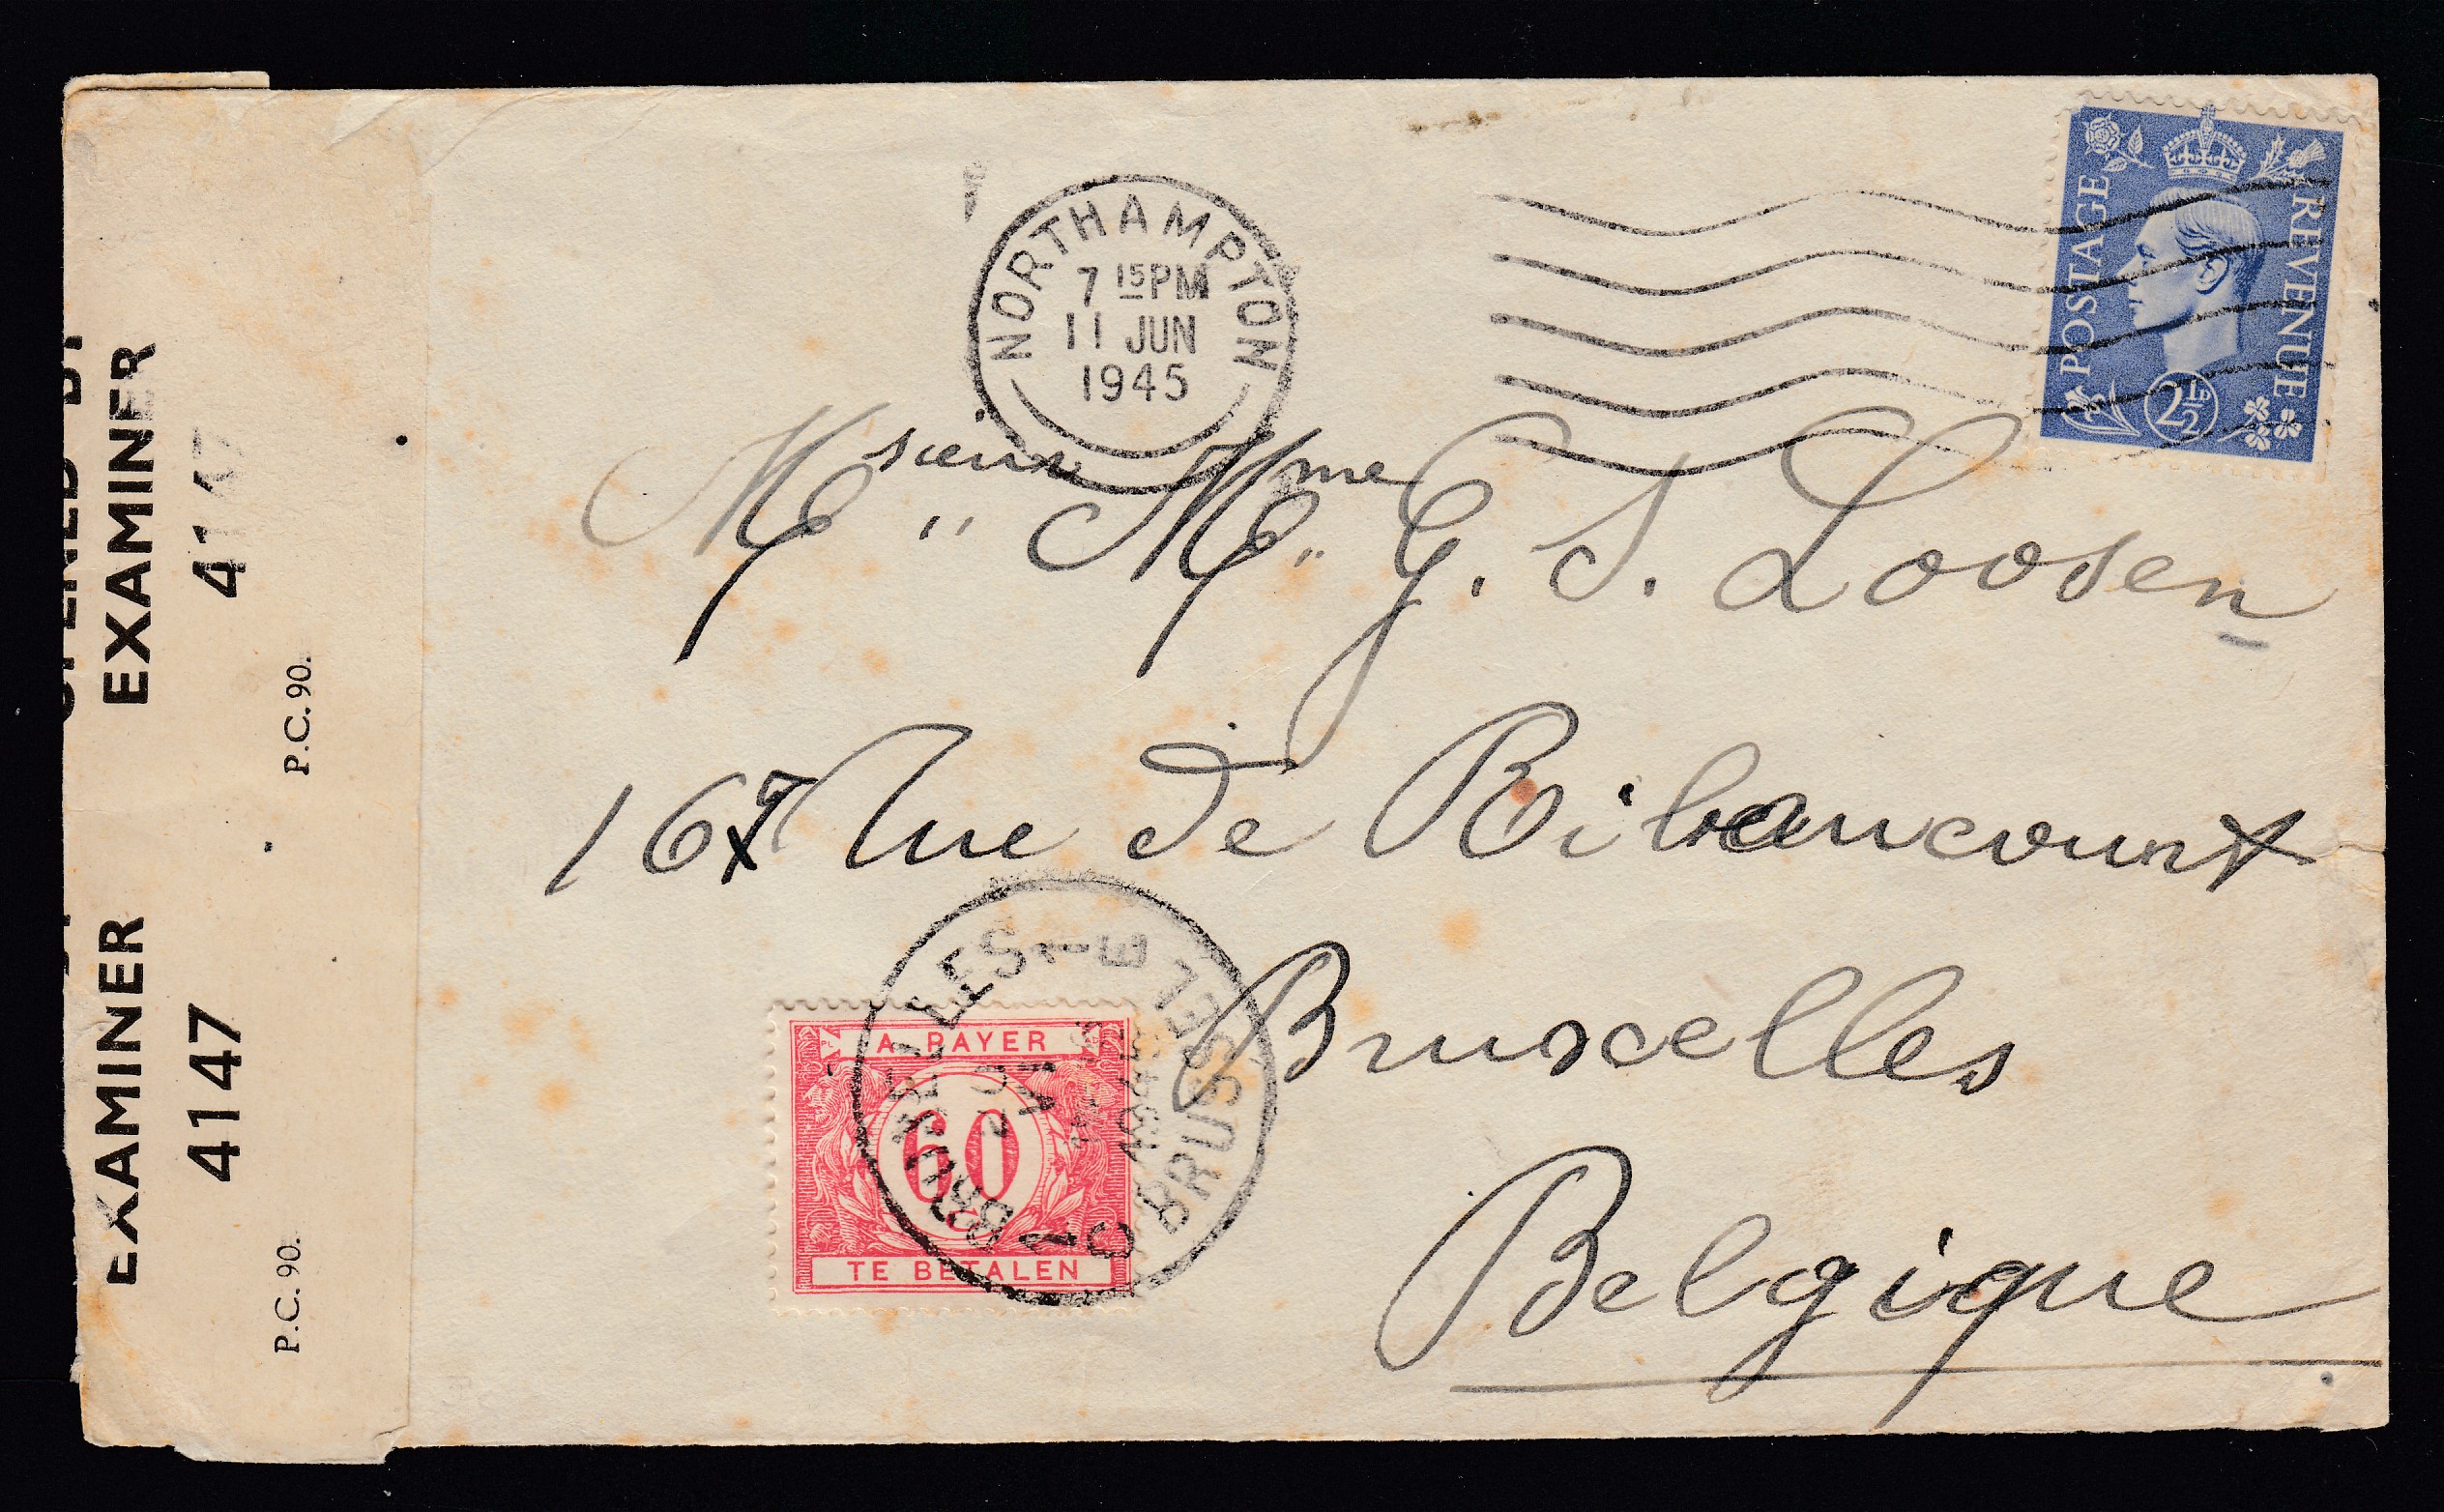 OPENED BY
EXAMINER
4147
P.C. 90.
EXAMINER
4147
P.C. 90.
NORTHAMPTON
7 15 PM
11 JUN
1945
POSTAGE
REVENUE
2½D
Msieur Mme G. S. Loosen
167 Rue de Ribaucourt
Bruxelles
Belgique
A PAYER
60
TE BETALEN
BRUXELLES 1
BRUSSEL